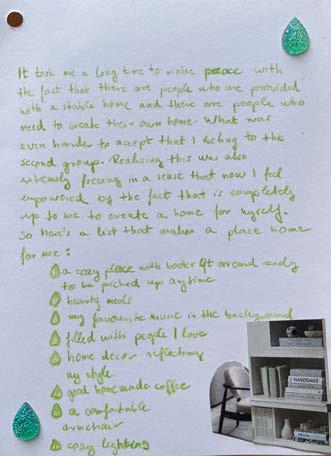 It took me a long time to make peace with
the fact that there are people who are provided
with a stable home and there are people who
need to create their own home. What was
even harder to accept that I belong to the
second group. Realising this was also
extremely freeing in a sense that now I feel
empowered by the fact that is completely
up to me to create a home for myself.
So here's a list that makes a place home
for me:
a cozy place with books left around ready
to be picked up anytime
hearty meals
my favourite music in the background
filled with people I love
home decor reflecting
my style
good homemade coffee
a comfortable
armchair
cozy lighting
HANDBAGS